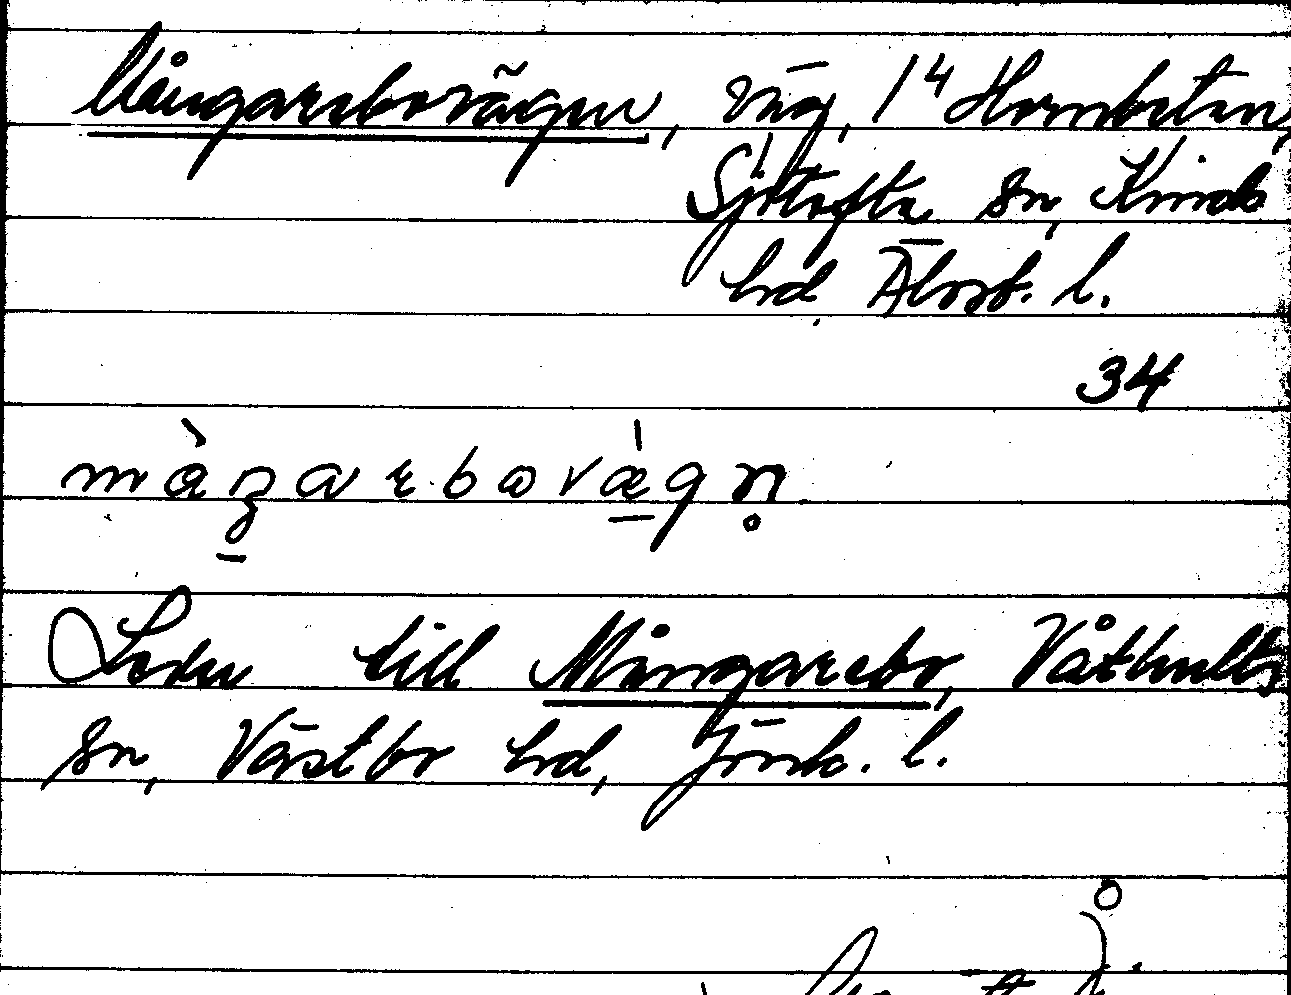 Mångarebovägen, väg, 1⁴ Hornbeten,
Sjötofta sn, Kinds
hrd Älvsb. l.
34
Leder till Mångarebo, Våthults
sn, Västbo hrd, Jönk. l.